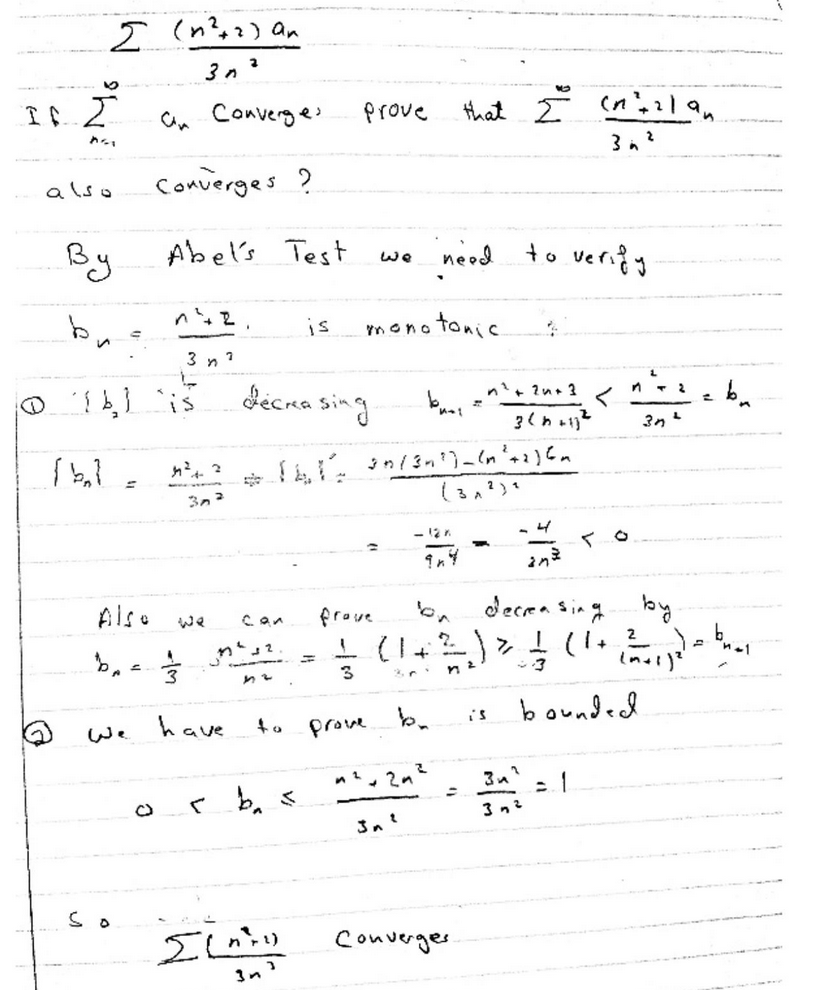 Σ (n²+2) aₙ / 3n²
If Σ_{n=1}^{∞} aₙ Converges prove that Σ^{∞} (n²+2) aₙ / 3n²
also Converges ?
By Abel's Test we need to verify
bₙ = n²+2 / 3n² . is monotonic :
① {bₙ} is decreasing bₙ₊₁ = n²+2n+3 / 3(n+1)² < n²+2 / 3n² = bₙ
{bₙ} = n²+2 / 3n² ⇒ {bₙ}' = 2n(3n²)-(n²+2)6n / (3n²)²
= -12n / 9n⁴ = -4 / 3n³ < 0
Also we can prove bₙ decreasing by
bₙ = 1/3 · n²+2 / n² = 1/3 (1 + 2/n²) ≥ 1/3 (1 + 2/(n+1)²) = bₙ₊₁
② We have to prove bₙ is bounded
0 < bₙ ≤ n²+2n² / 3n² = 3n² / 3n² = 1
So
Σ (n²+2) / 3n² Converges